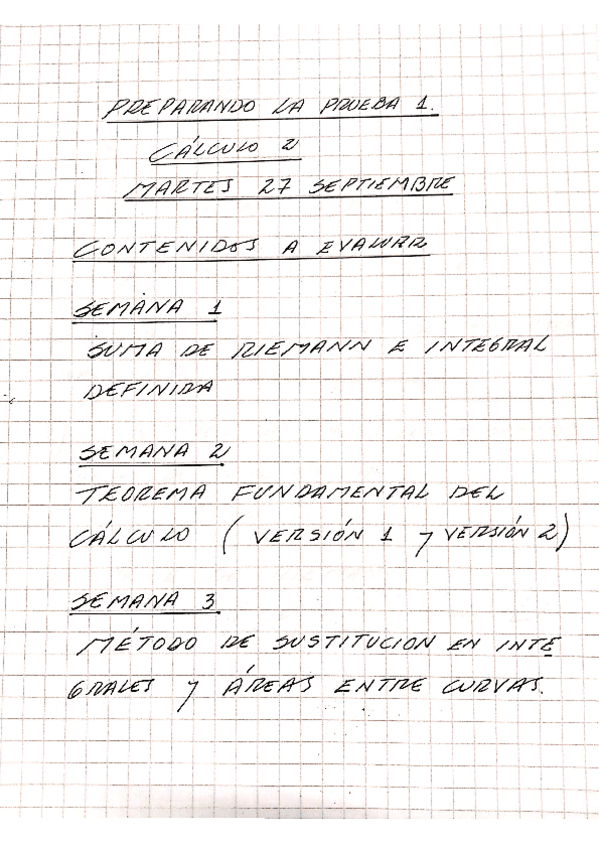 PREPARANDO LA PRUEBA 1.
CÁLCULO 2
MARTES 27 SEPTIEMBRE
CONTENIDOS A EVALUAR
SEMANA 1
SUMA DE RIEMANN E INTEGRAL
DEFINIDA
SEMANA 2
TEOREMA FUNDAMENTAL DEL
CÁLCULO (VERSIÓN 1 y VERSIÓN 2)
SEMANA 3
MÉTODO DE SUSTITUCION EN INTE
GRALES y ÁREAS ENTRE CURVAS.